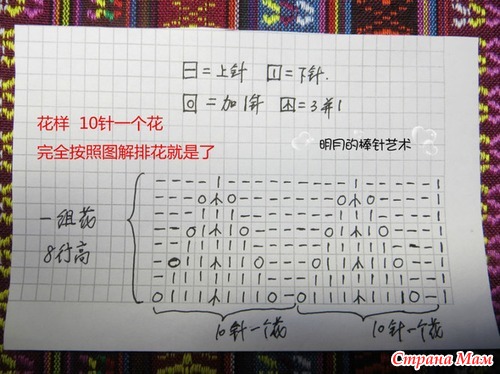 曰=上针 囗=下针.
回=加1针 困=3并1
花样 10针一个花
完全按照图解排花就是了
明月的棒针艺术
一组花
8行高
10针一个花 10针一个花
Страна Мам